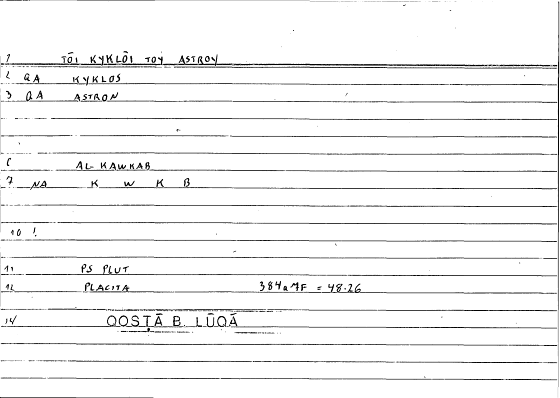 1 TŌI KYKLŌI TOY ASTROY
2 QA KYKLOS
3 QA ASTRON
6 AL-KAWKAB
7 NA K W K B
10 !
11 PS PLUT
12 PLACITA 384a 7F = 48.26
14 QOSṬĀ B. LŪQĀ